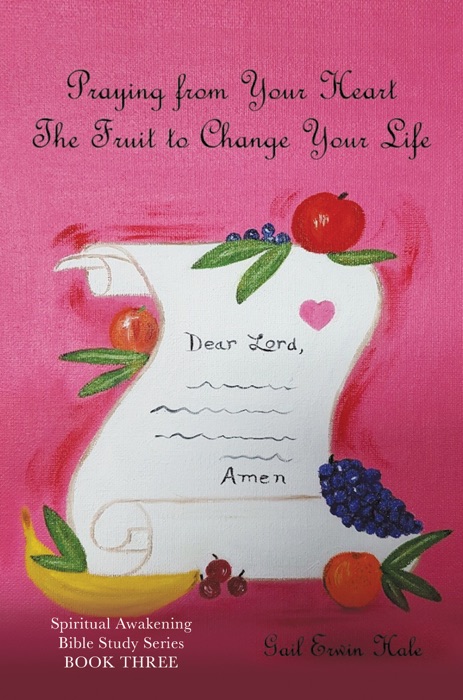 Praying from Your Heart
The Fruit to Change Your Life
Dear Lord,
Amen
Spiritual Awakening
Bible Study Series
BOOK THREE
Gail Erwin Hale